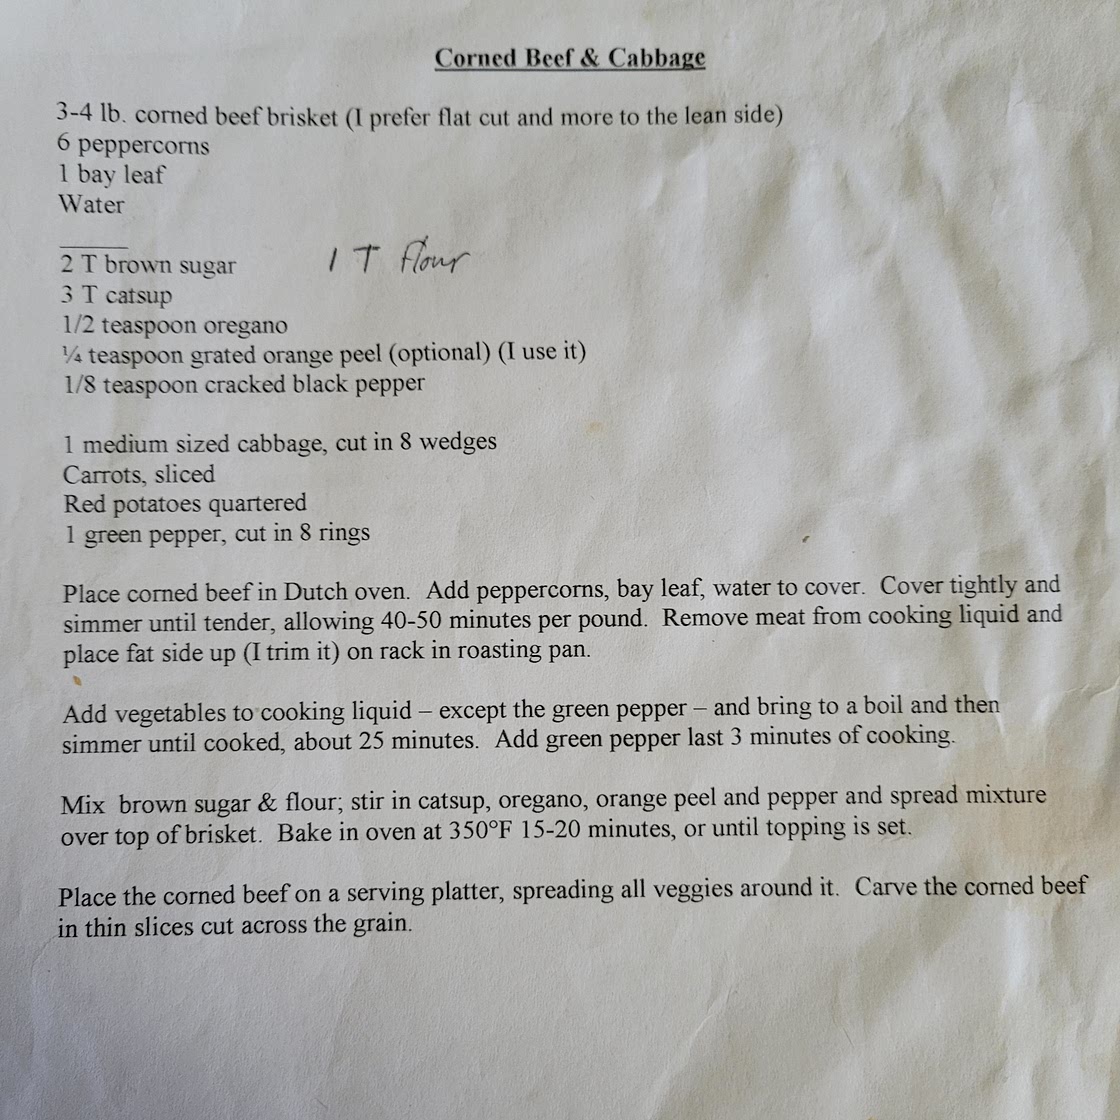 Corned Beef & Cabbage
3-4 lb. corned beef brisket (I prefer flat cut and more to the lean side)
6 peppercorns
1 bay leaf
Water
2 T brown sugar 1 T flour
3 T catsup
1/2 teaspoon oregano
¼ teaspoon grated orange peel (optional) (I use it)
1/8 teaspoon cracked black pepper
1 medium sized cabbage, cut in 8 wedges
Carrots, sliced
Red potatoes quartered
1 green pepper, cut in 8 rings
Place corned beef in Dutch oven. Add peppercorns, bay leaf, water to cover. Cover tightly and
simmer until tender, allowing 40-50 minutes per pound. Remove meat from cooking liquid and
place fat side up (I trim it) on rack in roasting pan.
Add vegetables to cooking liquid – except the green pepper – and bring to a boil and then
simmer until cooked, about 25 minutes. Add green pepper last 3 minutes of cooking.
Mix brown sugar & flour; stir in catsup, oregano, orange peel and pepper and spread mixture
over top of brisket. Bake in oven at 350°F 15-20 minutes, or until topping is set.
Place the corned beef on a serving platter, spreading all veggies around it. Carve the corned beef
in thin slices cut across the grain.